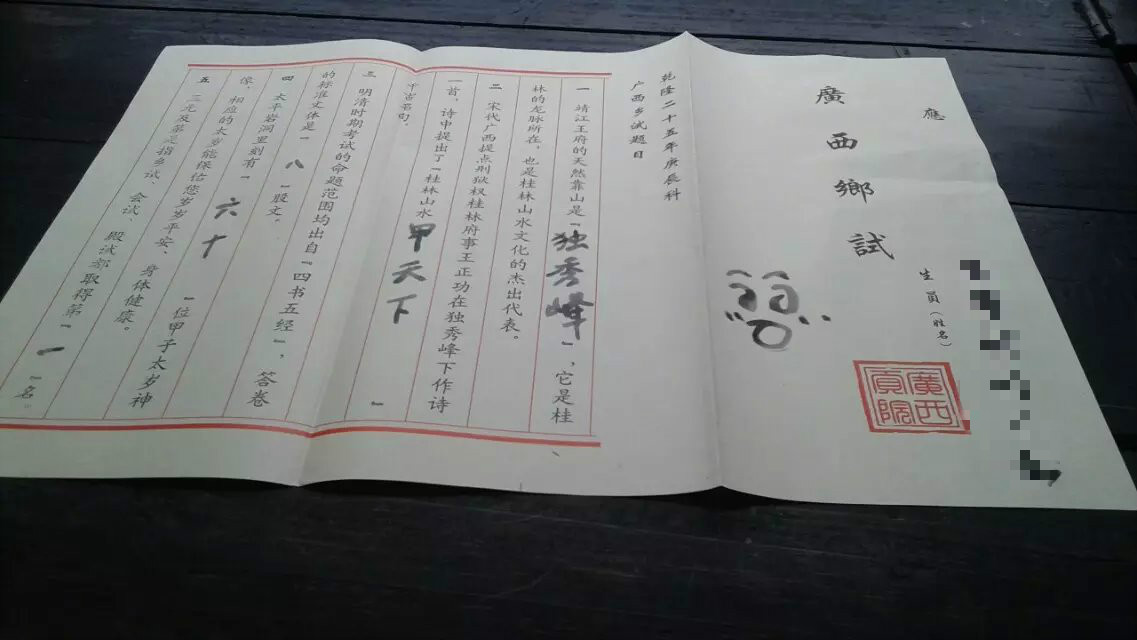 應
廣西鄉試
生員（姓名）
廣西貢院
乾隆二十五年庚辰科
广西乡试题目
一 靖江王府的天然靠山是“独秀峰”，它是桂
林的龙脉所在，也是桂林山水文化的杰出代表。
二 宋代广西提点刑狱权桂林府事王正功在独秀峰下作诗
一首，诗中提出了“桂林山水甲天下”
千古名句。
三 明清时期考试的命题范围均出自“四书五经”，答卷
的标准文体是“八”股文。
四 太平岩洞里刻有“六十”位甲子太岁神
像，相应的太岁能保佑您岁岁平安、身体健康。
五 三元及第是指乡试、会试、殿试都取得第“一”名。